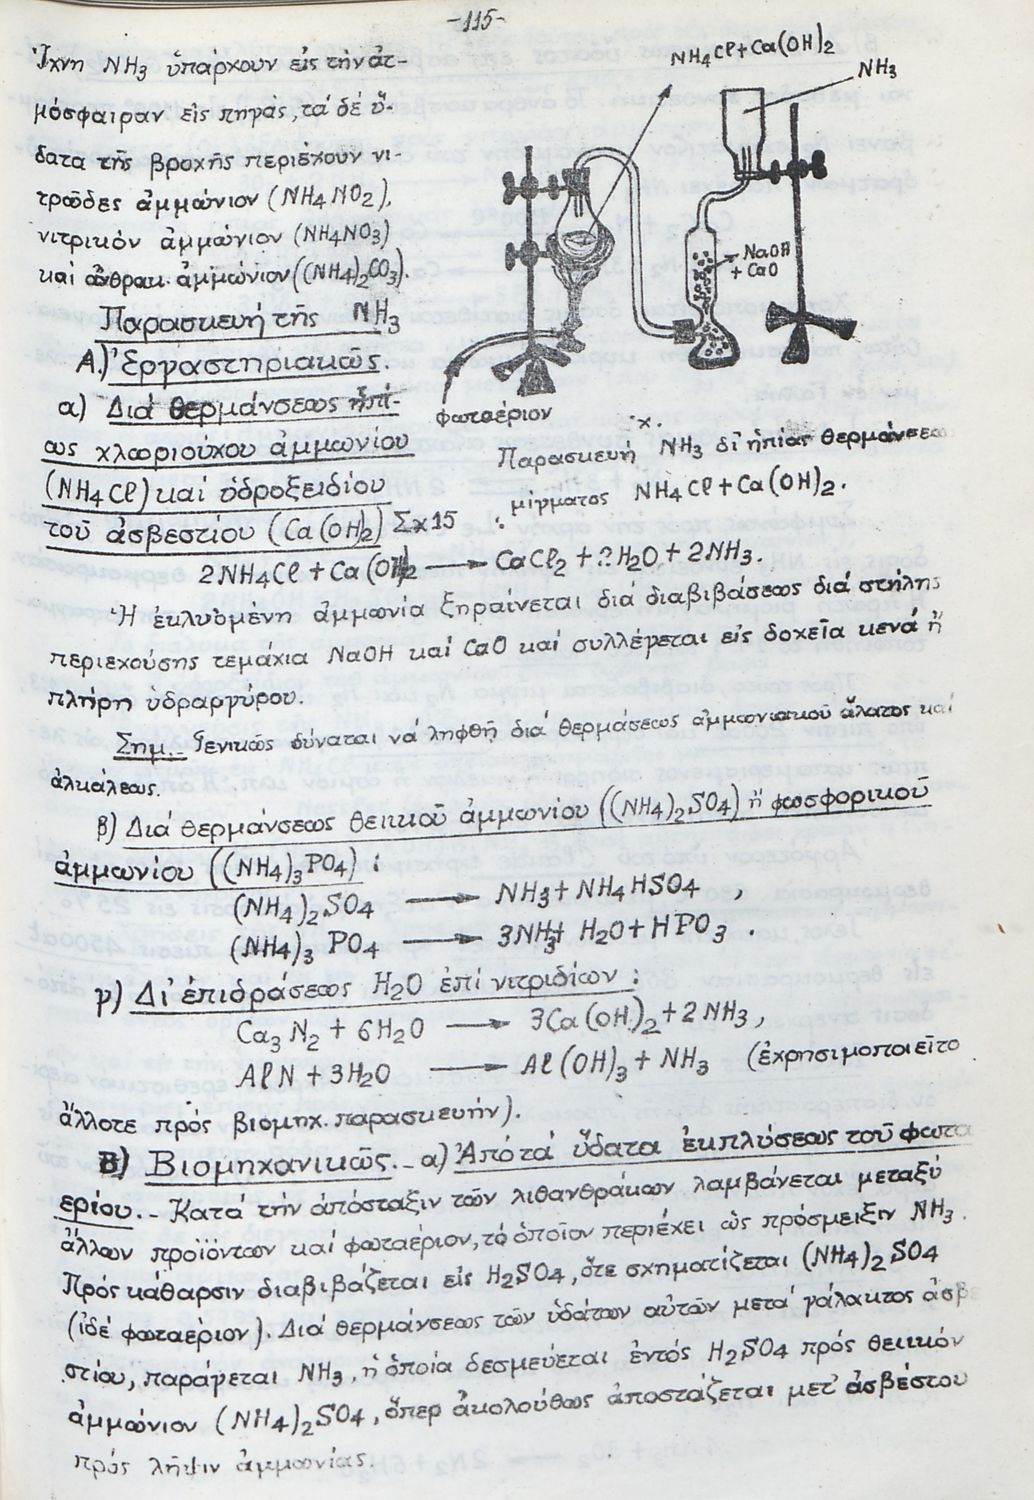 -115-
Ἴχνη NH3 ὑπάρχουν εἰς τήν ἀτ-
μόσφαιραν εἰς πηγάς, τά δέ ὕ-
δατα τῆς βροχῆς περιέχουν νι-
τρῶδες ἀμμώνιον (NH4NO2),
νιτρικόν ἀμμώνιον (NH4NO3)
καί ἀνθρακ. ἀμμώνιον ((NH4)2CO3).
Παρασκευή τῆς NH3
Α) Ἐργαστηριακῶς.
α) Διά θερμάνσεως ἠπί-
ως χλωριούχου ἀμμωνίου
(NH4Cl) καί ὑδροξειδίου
τοῦ ἀσβεστίου (Ca(OH)2) Σχ 15 :
NH4Cl + Ca(OH)2
NH3
NaOH
+ CaO
φωταέριον
Παρασκευή NH3 δι' ἠπίας θερμάνσεω
μίγματος NH4Cl + Ca(OH)2.
2NH4Cl + Ca(OH)2 → CaCl2 + ?H2O + 2NH3.
Ἡ ἐκλυομένη ἀμμωνία ξηραίνεται διά διαβιβάσεως διά στήλης
περιεχούσης τεμάχια NaOH καί CaO καί συλλέγεται εἰς δοχεῖα κενά ἤ
πλήρη ὑδραργύρου.
Σημ.- Γενικῶς δύναται νά ληφθῆ διά θερμάσεως ἀμμωνιακοῦ ἅλατος καί
ἀλκάλεως.
β) Διά θερμάνσεως θειικοῦ ἀμμωνίου ((NH4)2SO4) ἤ φωσφορικοῦ
ἀμμωνίου ((NH4)3PO4) :
(NH4)2SO4 → NH3 + NH4HSO4 ,
(NH4)3 PO4 → 3NH3+ H2O + HPO3 .
γ) Δι' ἐπιδράσεως H2O ἐπί νιτριδίων :
Ca3N2 + 6H2O → 3Ca(OH)2 + 2NH3,
AlN + 3H2O → Al(OH)3 + NH3 (ἐχρησιμοποιεῖτο
ἄλλοτε πρός βιομηχ. παρασκευήν).
Β) Βιομηχανικῶς.- α) Ἀπό τά ὕδατα ἐκπλύσεως τοῦ φωτα
ερίου.- Κατά τήν ἀπόσταξιν τῶν λιθανθράκων λαμβάνεται μεταξύ
ἄλλων προϊόντων καί φωταέριον, τό ὁποῖον περιέχει ὡς πρόσμειξιν NH3.
Πρός κάθαρσιν διαβιβάζεται εἰς H2SO4, ὅτε σχηματίζεται (NH4)2SO4
(ἰδέ φωταέριον). Διά θερμάνσεως τῶν ὑδάτων αὐτῶν μετά γάλακτος ἀσβε
στίου, παράγεται NH3, ἡ ὁποία δεσμεύεται ἐντός H2SO4 πρός θειικόν
ἀμμώνιον (NH4)2SO4, ὅπερ ἀκολούθως ἀποστάζεται μετ' ἀσβέστου
πρός λῆψιν ἀμμωνίας.